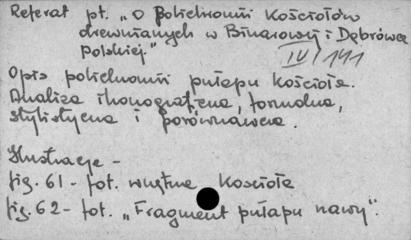 Referat pt. „O Polichromii Kościołów
drewnianych w Binarowej i Dębrówce
polskiej."
IV/141
Opis polichromii pułapu kościoła.
Analiza ikonograficzna, formalna,
stylistyczna i porównawcza.
Ilustracje -
fig. 61 - fot. wnętrze Kościoła
fig. 62 - fot. „Fragment pułapu nawy".